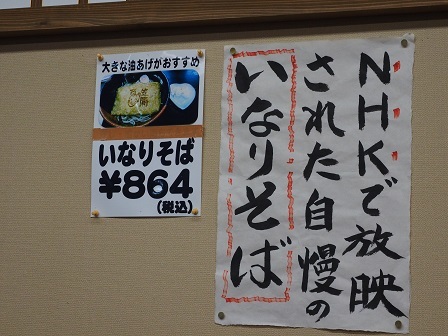 大きな油あげがおすすめ
いなりそば
¥864
(税込)
NHKで放映
された自慢の
いなりそば